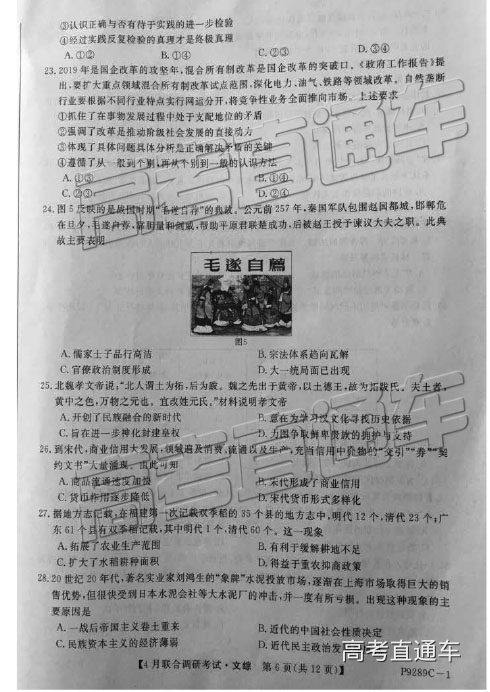 ③认识正确与否有待于实践的进一步检验
④经过实践反复检验的真理才是终极真理
A.①② B.①④ C.②③ D.③④
23.2019年是国企改革的攻坚年,混合所有制改革是国企改革的突破口。《政府工作报告》提
出,要扩大重点领域混合所有制改革试点范围,深化电力、油气、铁路等领域改革。自然垄断
行业要根据不同行业特点实行网运分开,将竞争性业务全面推向市场。上述要求
①抓住了在事物发展过程中处于支配地位的矛盾
②强调了改革是推动阶级社会发展的直接动力
③体现了具体问题具体分析是正确解决矛盾的关键
④遵循了从一般到个别,再从个别到一般的认识方法
A.①③ B.①④
C.②③ D.②④
24.图5反映的是战国时期“毛遂自荐”的典故。公元前257年,秦国军队包围赵国都城,邯郸危
在旦夕,毛遂自荐,靠胆量和剑威,帮助平原君联楚成功,后被赵王授予谏议大夫之职。此典
故主要表明
毛遂自薦
图5
A.儒家士子品行高洁 B.宗法体系趋向瓦解
C.官僚政治制度形成 D.大一统局面已出现
25.北魏孝文帝说,“北人谓土为拓,后为跋。魏之先出于黄帝,以土德王,故为拓跋氏。夫土者,
黄中之色,万物之元也。宜改姓元氏。”材料说明孝文帝
A.开创了民族融合的新时代 B.意在为学习汉文化寻找历史依据
C.旨在进一步神化封建皇权 D.力图争取鲜卑贵族的拥护与支持
26.到宋代,商业信用大发展,领域遍及消费、流通以及生产,充当信用中介物的“交引”“券”“契
约文书”大量涌现。由此可知
A.商品流通速度加快 B.宋代形成了商业信用
C.货币作用逐步降低 D.宋代货币形式多样化
27.据地方志记载,在福建第一次记载双季稻的35个县的地方志中,明代12个,清代23个,广
东61个县有双季稻记载,其中明代1个,清代60个。这一现象
A.拓展了农业生产范围 B.有利于缓解耕地不足
C.扩大了水稻耕种面积 D.得益于重农抑商政策
28.20世纪20年代,著名实业家刘鸿生的“象牌”水泥投放市场,逐渐在上海市场取得巨大的销
售优势,但很快受到日本水泥会社等大水泥厂的冲击,并一度有所亏损。出现这种现象的主
要原因是
A.一战后帝国主义卷土重来 B.近代的中国社会性质决定
C.民族资本主义的经济薄弱 D.近代民主主义革命不彻底
【4月联合调研考试·文综 第6页(共12页)】 P9289C-1
高考直通车
高考直通车
高考直通车